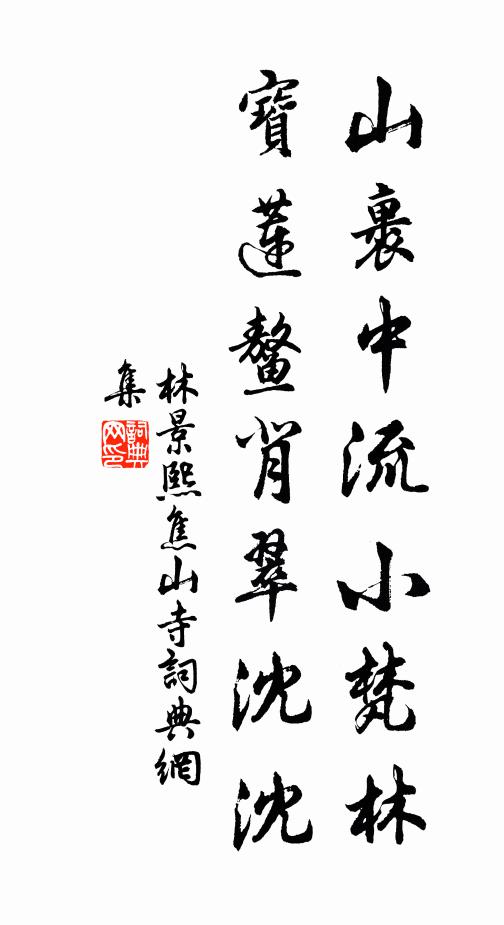 山裹中流小梵林
寶蓮鰲背翠沈沈
林景熙焦山寺詞典網
集
詞典
网印